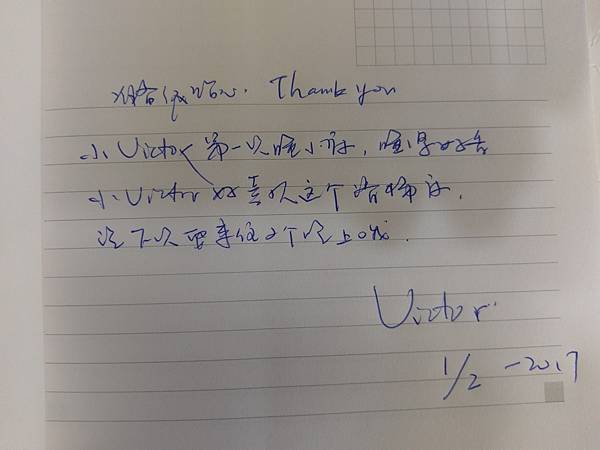 Thank you
小Victor第一次睡小床,睡得好香
小Victor好喜欢这个
说下次要来住2个晚上哦.
Victor
1/2 -2017